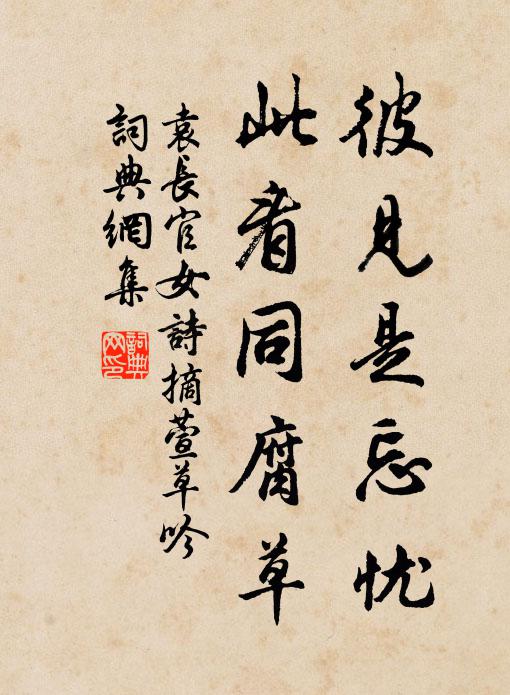 彼見是忘忧
此看同腐草
袁長官女詩摘萱草吟
詞典網集
詞典网印